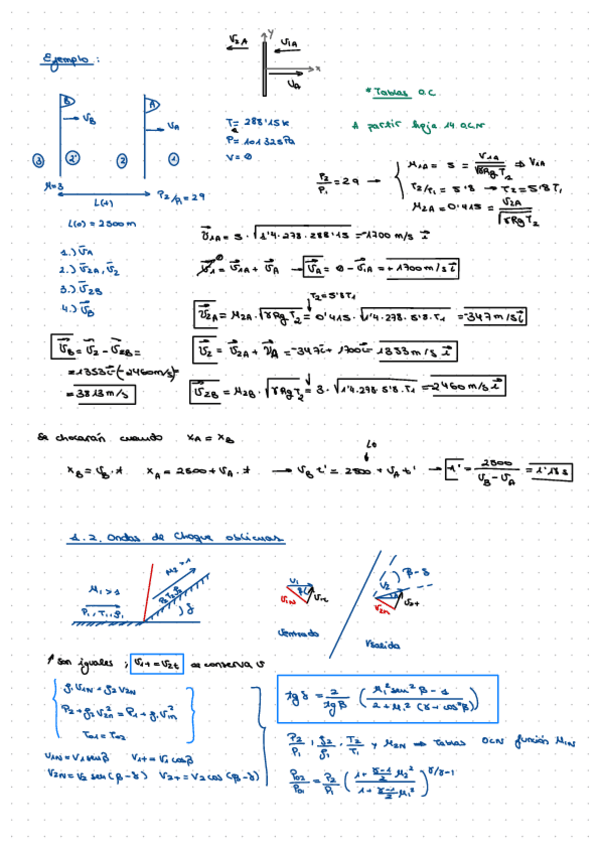 Ejemplo:
V2A V1A
y
x
VA
* Tablas O.C.
A partir hoja 14 OCN
B A
VB VA
3 2' 2 1
M=3
P2/P1 = 29
L(t)
L(0) = 2500 m
T = 288'15K
P = 101325 Pa
V = 0
P2/P1 = 29 →
M1A = 5 = V1A/√γRgT2 ⇒ V1A
T2/T1 = 5'8 → T2 = 5'8 T1
M2A = 0'415 = V2A/√γRgT2
1.) VA
2.) V2A, V2
3.) V2B
4.) VB
V1A = 5 · √1'4·278·288'15 = -1700 m/s i
V1 = V1A + VA → VA = 0 - V1A = +1700 m/s i
T2 = 5'8T1
V2A = M2A · √γRgT2 = 0'415 · √1'4·278·5'8·T1 = -347 m/s i
V2 = V2A + VA = -347i + 1700i = 1353 m/s i
V2B = M2B · √γRgT2 = 3 · √1'4·278·5'8·T1 = -2460 m/s i
VB = V2 - V2B =
= 1353i - (-2460 m/s) =
= 3813 m/s
Se chocarán cuando xA = xB
L0
xB = VB · t xA = 2500 + VA · t → VB t' = 2500 + VA t' → t' = 2500/(VB - VA) = 1'18 s
1.2. Ondas de choque oblicuas
M1 > 1
P1, T1, ρ1
M2 > 1
P2 T2 ρ2
δ
V1
V1N
V1t
Ventrada
V2
β-δ
V2n
V2t
Vsalida
son iguales; V1t = V2t se conserva v
ρ1 V1N = ρ2 V2N
P2 + ρ2 V2n² = P1 + ρ1 V1n²
T01 = T02
V1N = V1 sen β V1t = V1 cos β
V2N = V2 sen (β-δ) V2t = V2 cos (β-δ)
tg δ = 2/tg β (M1² sen² β - 1 / 2 + M1² (γ + cos 2β))
P2/P1, ρ2/ρ1, T2/T1 y M2N ⇒ Tablas OCN función M1N
P02/P01 = P2/P1 (1 + γ-1/2 M2² / 1 + γ-1/2 M1²)^γ/γ-1